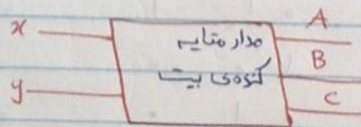 x
y
مدار مقایسه
کننده‌ی بیت
A
B
C